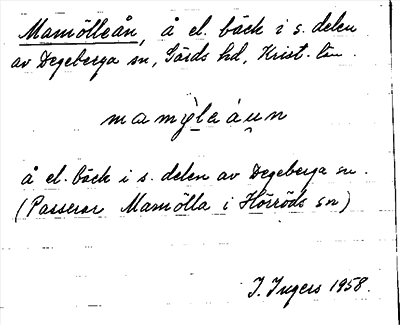 Mamölleån, å el. bäck i s. delen
av Degeberga sn, Gärds hd, Krist. län.
mamy̍leáu̯n
å el. bäck i s. delen av Degeberga sn.
(Passerar Mamölla i Hörröds sn)
I. Ingers 1958.